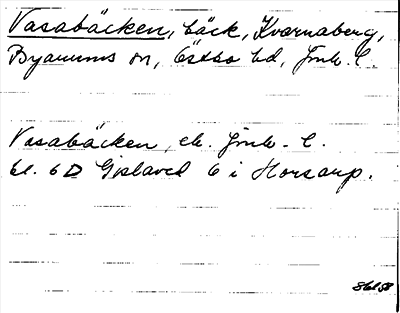 Vasabäcken, bäck, Kvarnaberg,
Byarums sn, Östbo hd, Jönk. l.
Vasabäcken, ek. Jönk. l.
bl. 6 D Gislaved 6 i Horsarp.